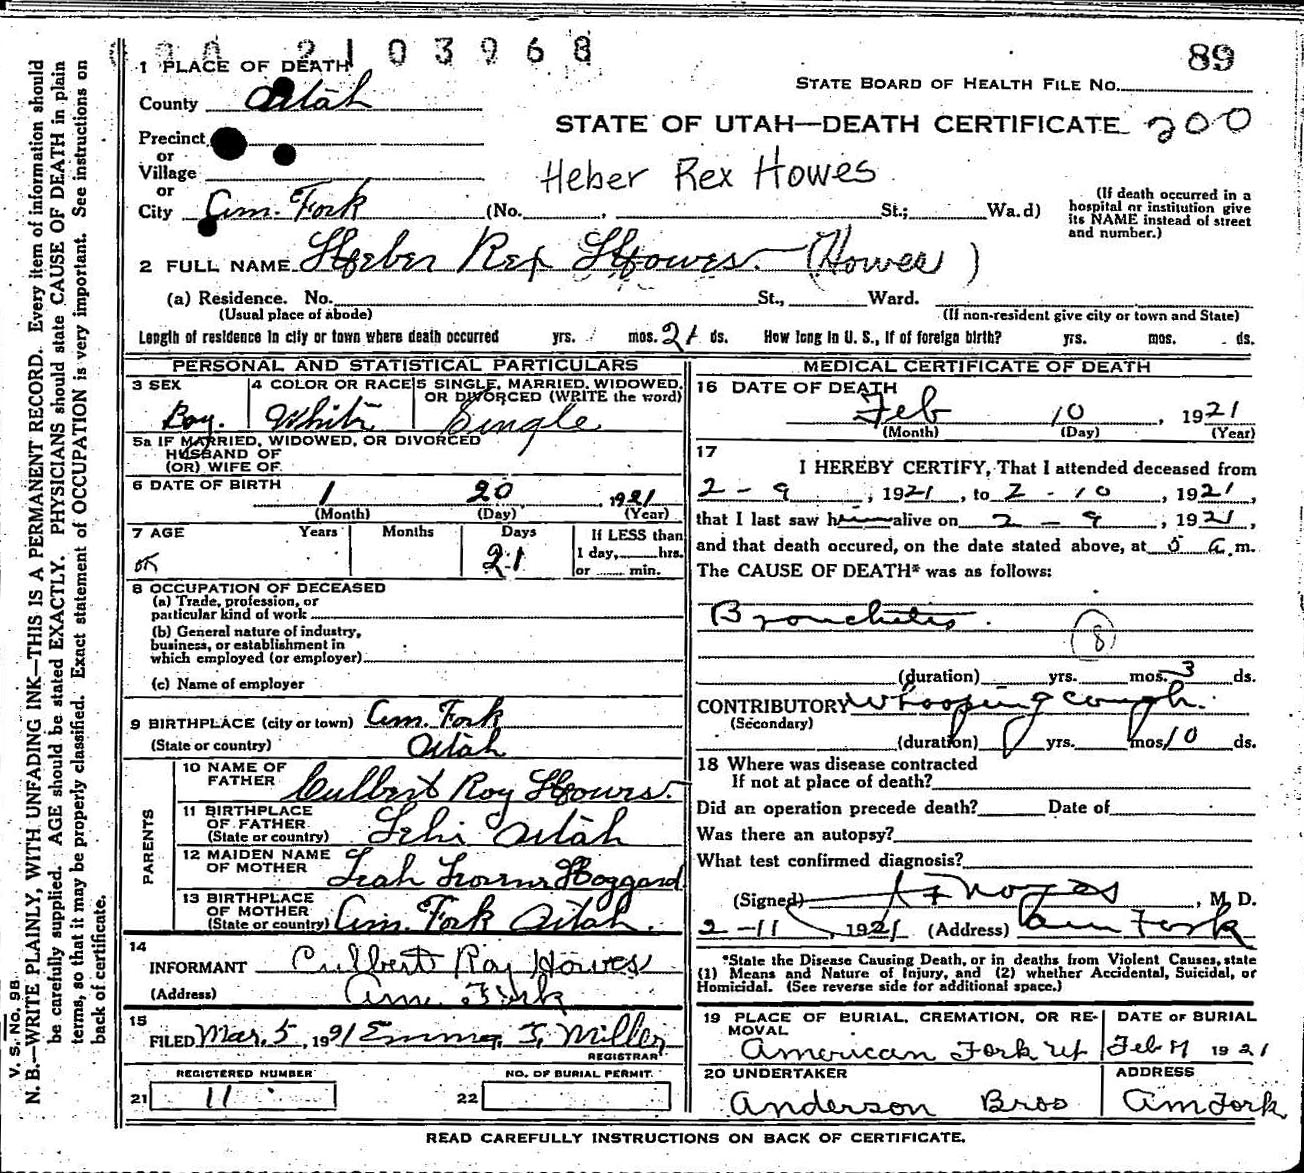 2103968
89
1 PLACE OF DEATH
STATE BOARD OF HEALTH FILE No.
County Utah
STATE OF UTAH—DEATH CERTIFICATE 200
Precinct
or
Village
Heber Rex Howes
or
City Am. Fork (No. , St.; Wa.d)
(If death occurred in a
hospital or institution give
its NAME instead of street
and number.)
2 FULL NAME Heber Rex Howes (Howes)
(a) Residence. No. St., Ward.
(Usual place of abode) (If non-resident give city or town and State)
Length of residence in city or town where death occurred yrs. mos. 21 ds. How long in U. S., if of foreign birth? yrs. mos. ds.
PERSONAL AND STATISTICAL PARTICULARS
3 SEX 4 COLOR OR RACE 5 SINGLE, MARRIED, WIDOWED,
OR DIVORCED (WRITE the word)
Boy. White Single
5a IF MARRIED, WIDOWED, OR DIVORCED
HUSBAND OF
(OR) WIFE OF
6 DATE OF BIRTH
1 20 , 1921
(Month) (Day) (Year)
7 AGE Years Months Days If LESS than
1 day, hrs.
or min.
ok 21
8 OCCUPATION OF DECEASED
(a) Trade, profession, or
particular kind of work
(b) General nature of industry,
business, or establishment in
which employed (or employer)
(c) Name of employer
9 BIRTHPLACE (city or town) Am. Fork
(State or country) Utah
PARENTS
10 NAME OF
FATHER Culbert Roy Howes.
11 BIRTHPLACE
OF FATHER
(State or country) Lehi Utah
12 MAIDEN NAME
OF MOTHER Leah Hoggard
13 BIRTHPLACE
OF MOTHER
(State or country) Am. Fork Utah.
14
INFORMANT Culbert Roy Howes
(Address) Am. Fork
15
FILED Mar. 5, 1921 Emma J. Miller
REGISTRAR
REGISTERED NUMBER NO. OF BURIAL PERMIT.
21 11 22
MEDICAL CERTIFICATE OF DEATH
16 DATE OF DEATH
Feb 10 , 1921
(Month) (Day) (Year)
17
I HEREBY CERTIFY, That I attended deceased from
2 - 9 , 1921, to 2 - 10 , 1921,
that I last saw him alive on 2 - 9 , 1921,
and that death occured, on the date stated above, at 5 a. m.
The CAUSE OF DEATH* was as follows:
Bronchitis.
8
(duration) yrs. mos. 3 ds.
CONTRIBUTORY Whooping cough.
(Secondary)
(duration) yrs. mos. 10 ds.
18 Where was disease contracted
If not at place of death?
Did an operation precede death? Date of
Was there an autopsy?
What test confirmed diagnosis?
(Signed) Noyes , M. D.
2 - 11 , 1921 (Address) Am Fork
*State the Disease Causing Death, or in deaths from Violent Causes, state
(1) Means and Nature of Injury, and (2) whether Accidental, Suicidal, or
Homicidal. (See reverse side for additional space.)
19 PLACE OF BURIAL, CREMATION, OR RE-
MOVAL
DATE OF BURIAL
American Fork Ut Feb 11 1921
20 UNDERTAKER ADDRESS
Anderson Bros Am Fork
READ CAREFULLY INSTRUCTIONS ON BACK OF CERTIFICATE.
V. S. No. 9B
N. B.—WRITE PLAINLY, WITH UNFADING INK—THIS IS A PERMANENT RECORD. Every item of information should
be carefully supplied. AGE should be stated EXACTLY. PHYSICIANS should state CAUSE OF DEATH in plain
terms, so that it may be properly classified. Exact statement of OCCUPATION is very important. See instructions on
back of certificate.